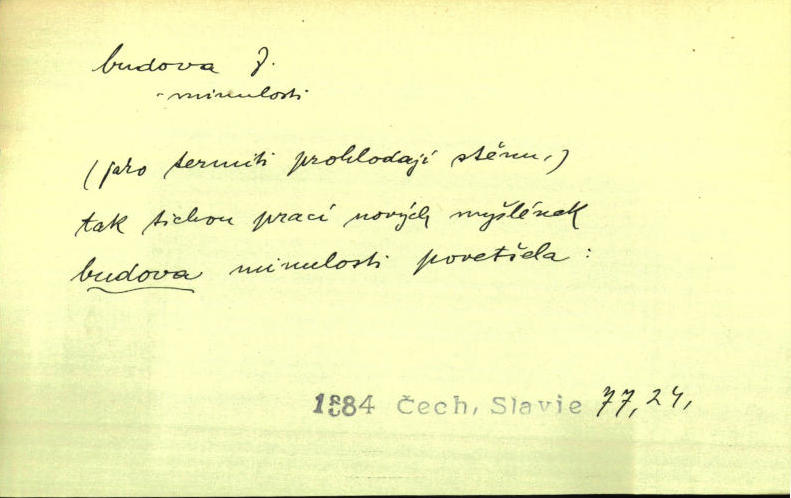 budova f.
minulosti
(jako termiti prohlodají stěnu,)
tak tichou prací nových myšlének
budova minulosti povetšela:
1884 Čech, Slavie 77, 24,